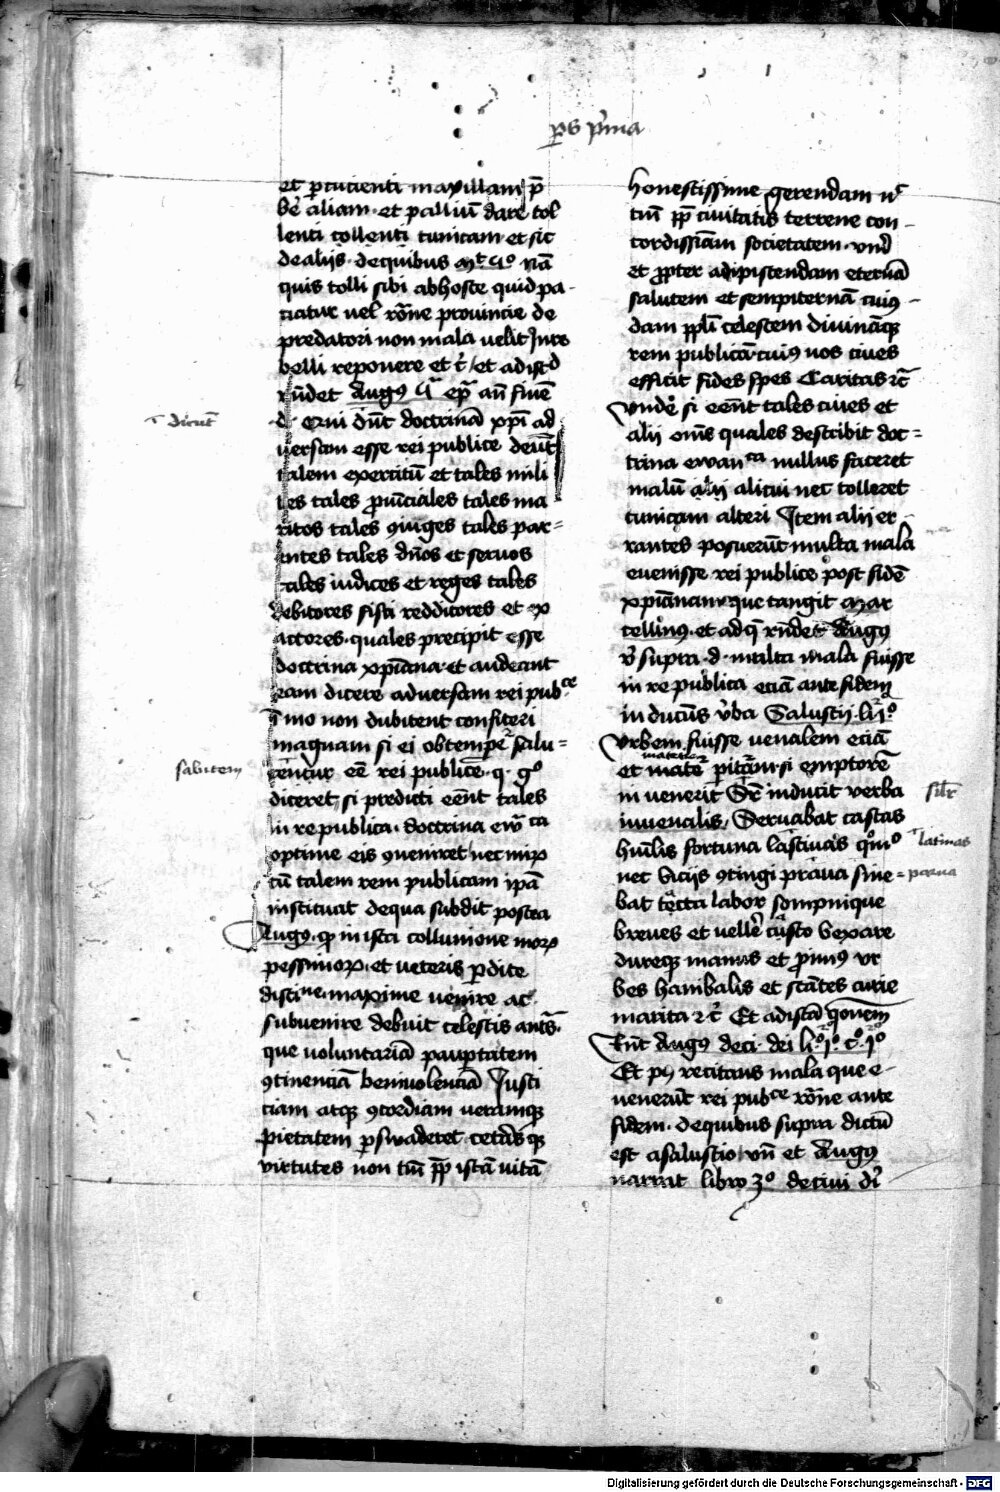 ꝑs p̄ma
et ꝑcucienti maxillam p̄
be aliam et palliū dare tol
lenti tollenti tunicam et sic
de aliis de quibus mͭ 5º nā
quis tolli sibi ab hoste quid pa-
ciatur vel rōne prouincie de
predatori non mala velit Jure
belli reponere et c̄ et ad istd
rn̄det Augꝰ ep̄ an̄ finē
d Qui dn̄t doctrinā xpī ad
dicunt
uersam esse rei publice dent
talem exercitū et tales mili
tes tales ꝓuīciales tales ma
ritos tales ꝯiuges tales par=
entes tales dn̄os et seruos
tales iudices et reges tales
debitores fisci redditores et ex
actores quales precipit esse
doctrina xpīana et audeant
eam dicere aduersam rei pubᶜᵉ
ī mo non dubitent confiteri
magnam si ei obtempeᵣ salu=
salutem
diceret si predicti eēnt tales
in re publica doctrina ewᶜᵃ
optime eis ꝯueniret nec miꝝ
cū talem rem publicam ipā
instituat de qua subdit postea
Augꝰ ꝙ in ista colluuione moꝝ
pessimoꝝ et veteris ꝑdite
discine maxime venire ac
subvenire debuit celestis
que voluntariā pauꝑtatem
ꝯtinenciā beniuolenciā Justi
ciam atqꝫ ꝯcordiam veramqꝫ
pietatem ꝑswaderet cetāsqꝫ
virtutes non tm̄ ꝓp̄ istā vitā
honestissime gerendam nᶜ
tm̄ ꝓp̄ ciuitatis terrene con-
cordissiām societatem vn̄
et ꝓpter adipiscendam eternā
salutem et sempiternā cuiꝰ-
dam ppl̄i celestem diuināqꝫ
rem publicā cuiꝰ nos ciues
efficit fides spes Caritas ⁊c̄
vnde si eēnt tales ciues et
alii oīns quales describit doc=
trina ewanᶜᵃ nullus faceret
malū alii alicui nec tolleret
tunicam alteri Item alii er-
rantes posuerūt multa mala
euenisse rei publice post fidē
xpīanam que tangit Mar
cellinꝰ et ad q̄ rn̄det Augꝰ
v̄ supra d multa mala fuisse
in re publica eciā ante fidem
inducēs v̄ba Salustii
vrbem fuisse venalem eciā
mature
et mate pituram si emptorē
in venerit Sr̄ inducit verba
silr̄
iuuenalis Seruabat castas
hūilis fortuna lasciuas
latinas
nec viciis ꝯtingi praua sine=
parua
bat tecta labor sompnique
breues et vellere tusco vexate
dureqꝫ manus et ꝓximꝰ vr
bes hanibalis et stātes turie
marita ⁊c̄ Et ad istā qōnem
Augꝰ de ci dei
Et recitans mala que e-
uenerūt rei pubᶜᵉ rōne ante
fidem de quibus supra dictū
est a salustio vn̄ et Augꝰ
narrat libro 3º de ciui di
Digitalisierung gefördert durch die Deutsche Forschungsgemeinschaft - DFG